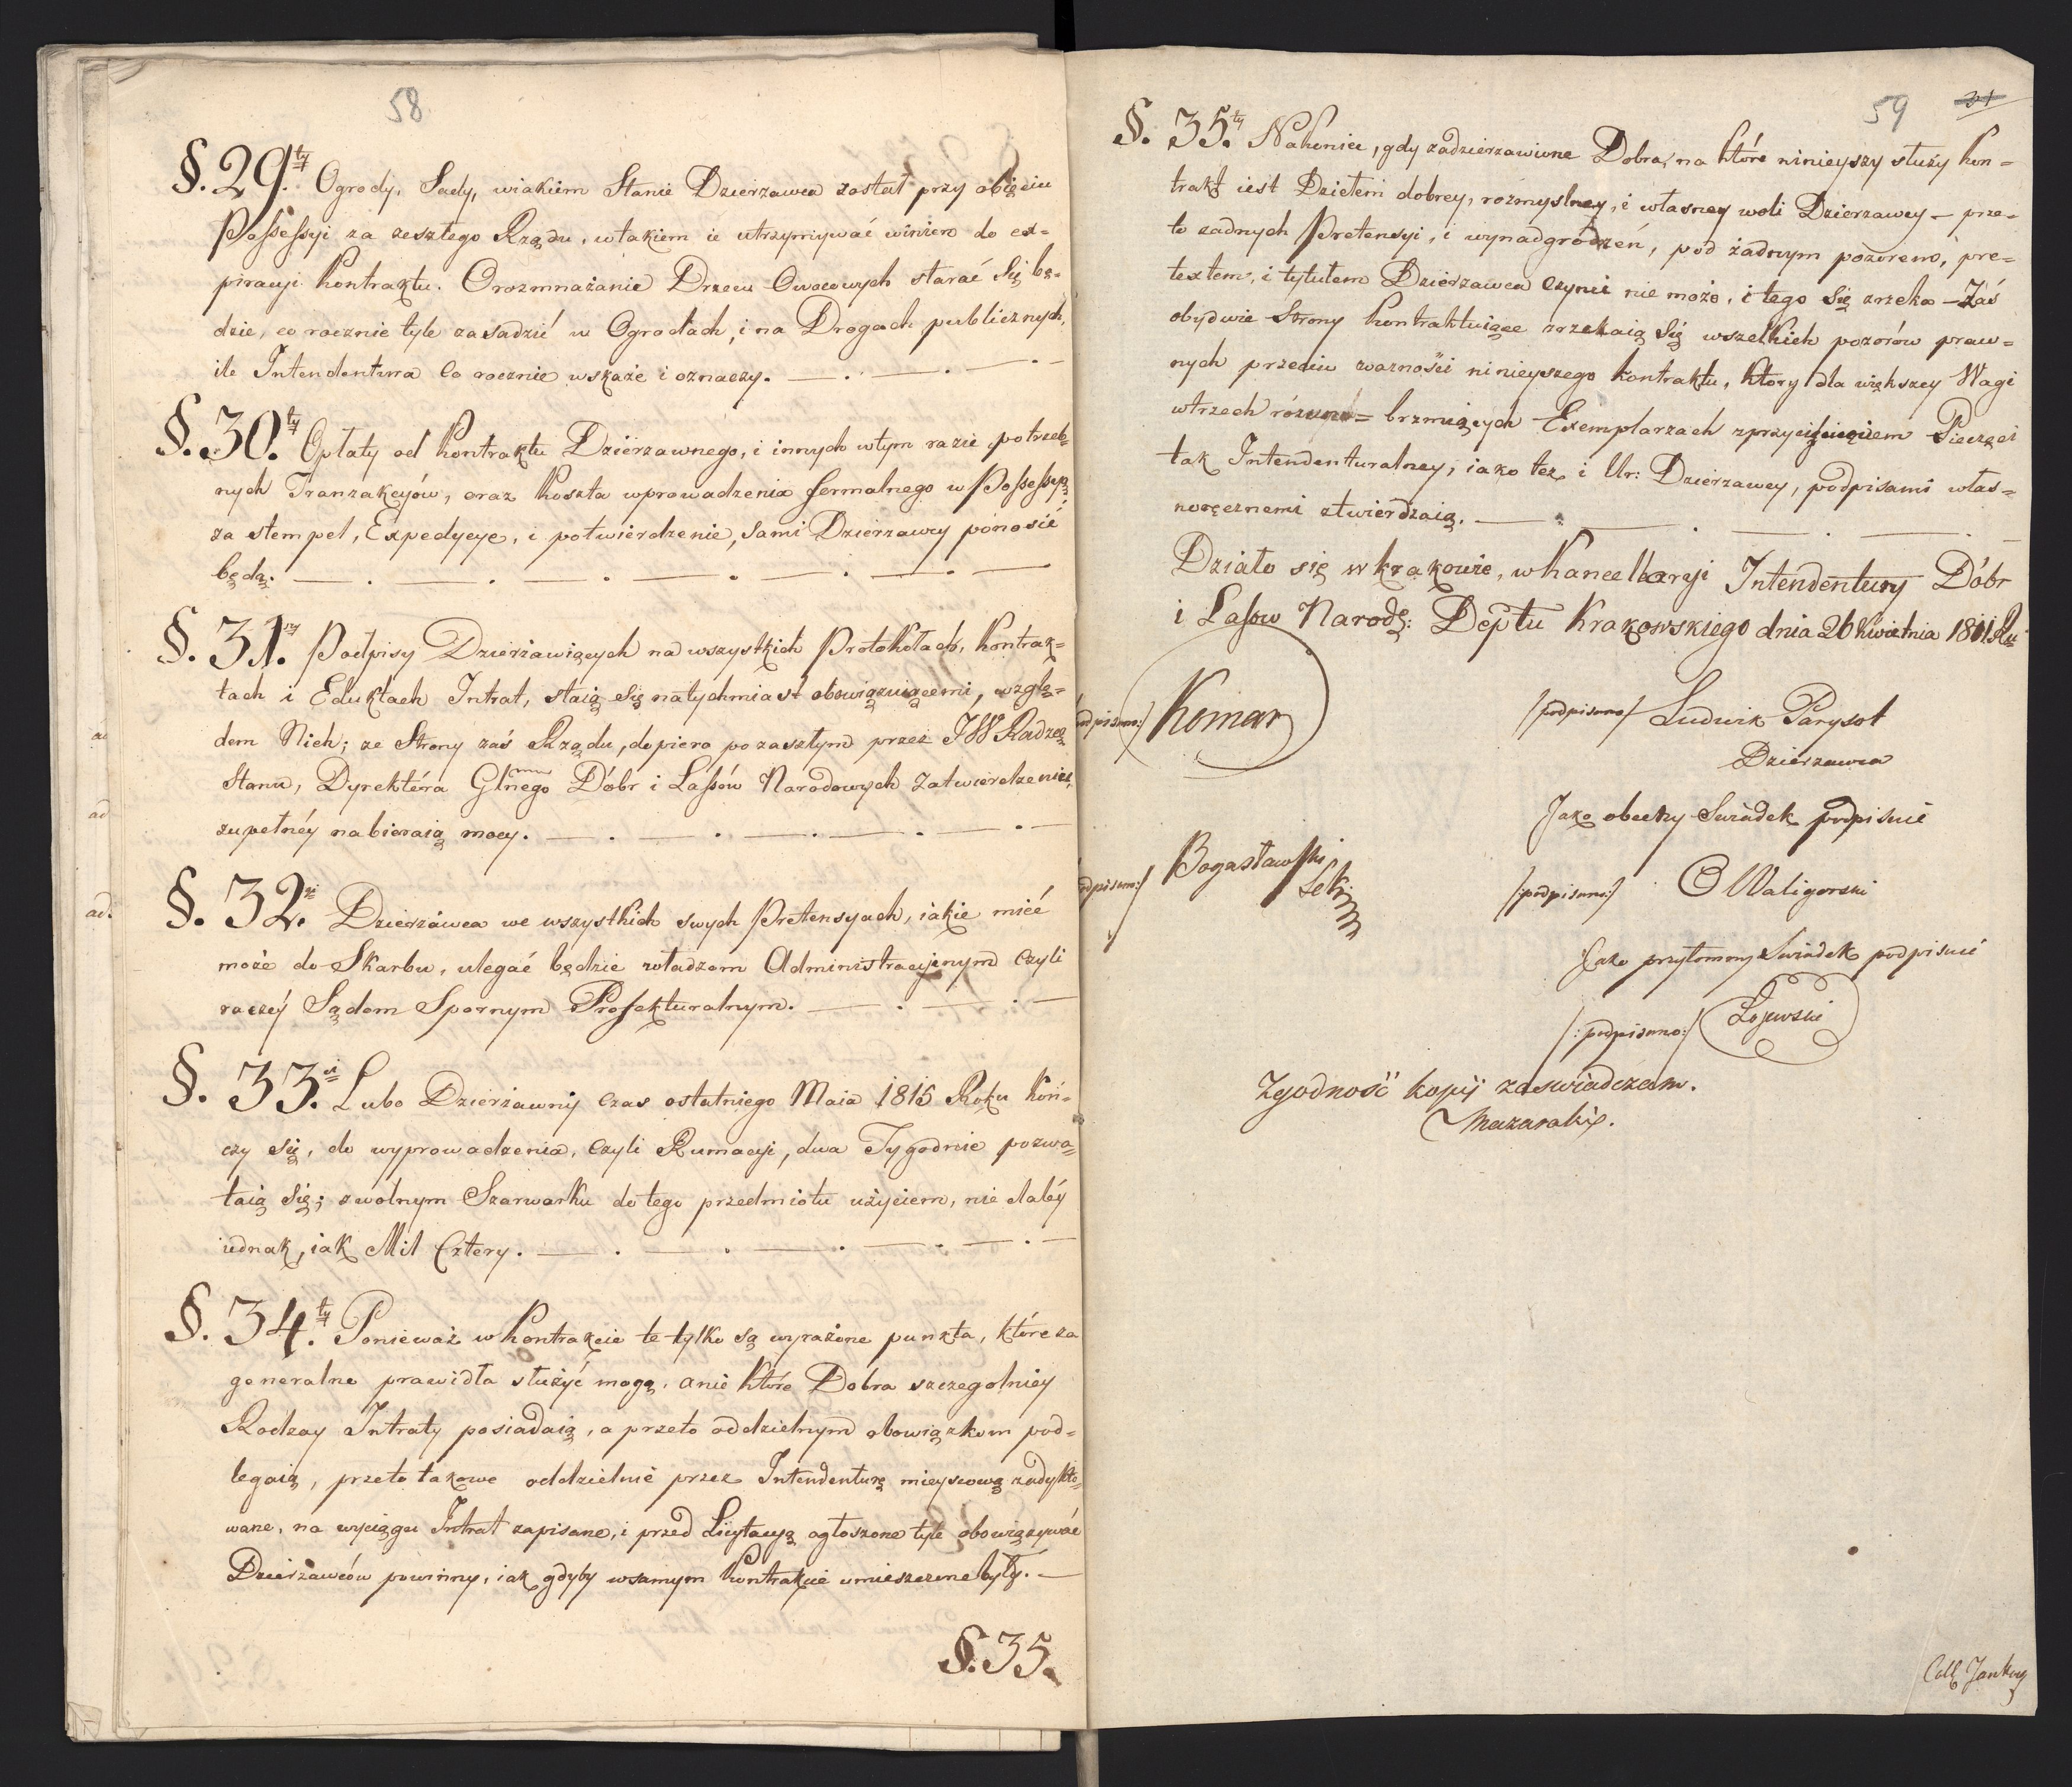 58
§. 29.ty Ogrody, Sady, wiakiem Stanie Dzierzawca zastał przy obięciu
Possessyi za zeszłego Rządu, wtakiem ie utrzymywać winien do ex-
piracyi Kontraktu. Orozmnażanie Drzew Owocowych starać Się bę-
dzie, co rocznie tyle zasadzić w Ogrodach, i na Drogach publicznych,
ile Intendentura Co rocznie wskaże i oznaczy.
§. 30.ty Opłaty od Kontraktu Dzierzawnego, i innych wtym razie potrzeb-
nych Tranzakcyów, oraz Koszta wprowadzenia formalnego w Possessyą,
za stempel, Expedycye, i potwierdzenie, Sami Dzierzawcy ponosić
będą.
§. 31.szy Podpisy Dzierżawiących na wszystkich Protokółach, Kontrak-
tach i Eduktach Intrat, staią Się natychmiast obowiązuiącemi, wzglę-
dem Nich; ze Strony zaś Rządu, dopiero po zaszłym przez JW Radzcę
Stanu, Dyrektóra Głnego Dóbr i Lassów Narodowych Zatwierdzeniu,
zupełnéy nabieraią mocy.
§. 32.gi Dzierżawca we wszystkich swych Pretensyach, iakie mieć
może do Skarbu, ulegać będzie władzom Administracyinym Czyli
raczéy Sądom Spornym Prefekturalnym.
§. 33.ci Lubo Dzierżawny Czas ostatniego Maia 1815 Roku Koń-
czy Się, do wyprowadzenia, Czyli Rumacyi, dwa Tygodnie pozwa-
laią Się; zwolnym Szarwarku do tego przedmiotu użyciem, nie daléy
iednak, iak Mil Cztery.
§. 34.ty Ponieważ w Kontrakcie te tylko są wyrażone punkta, które za
generalne prawidła służyć mogą, a nie które Dobra szczególniey
Rodzay Intraty posiadaią, a przeto oddzielnym obowiązkom pod-
legaią, przeto takowe oddzielnie przez Intendenturę mieyscową zadykto-
wane, na wyciągu Intrat zapisane, i przed Licytacyą ogłoszone tyle obowiązywać
Dzierżawców powinny, iak gdyby wsamym Kontrakcie umieszczone były.
§. 35.
59 31
§. 35.ty Nakoniec, gdy zadzierzawione Dobra, na które ninieyszy służy Kon-
trakt iest Dziełem dobrey, rozmyslney, i własney woli Dzierzawcy – prze-
to zadnych Pretensyi, i wynadgrodzeń, pod żadnym pozorem, pre-
textem, i tytułem Dzierzawca czynić nie może, i tego Się zrzeka – Zaś
obydwie Strony Kontraktuiące zrzekaią Się wszelkich pozorów praw-
nych przeciw ważności ninieyszego Kontraktu, Ktory dla większey Wagi
wtrzech równo-brzmiących Exemplarzach zprzyciśnieniem Pieczęci
tak Intendenturalney, iako tez i Ur: Dzierzawcy, podpisami włas-
noręcznemi ztwierdzaią.
Działo się w Krakowie, w Kancellaryi Intendentury Dóbr
i Lassow Narodo: Deptu Krakowskiego dnia 26 Kwietnia 1811 Ru
podpisano:/ Komar
/podpisano/ Ludwik Parysot
Dzierzawca
Jako obecny Swiadek podpisuię
podpisano:/ Bogasławski
Sek:
/podpisano:/ O Waligorski
Jako przytomny Swiadek podpisuię
/:podpisano:/ Łojewski
Zgodność kopij zaswiadczam.
Mazaraki.
Coll Jankuy
ad
ad
ad.